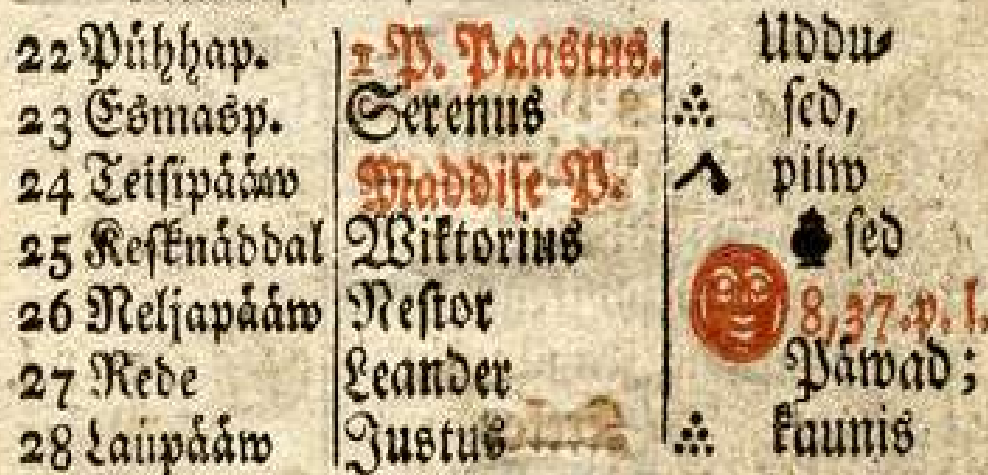 22 Pühhap. 1 P. Paastus. Uddu⸗
23 Esmasp. Serenus sed,
24 Teisipääw Maddise P. pilw
25 Kesknäddal Wiktorius sed
26 Neljapääw Nestor 8,37.p.l.
27 Rede Leander Päwad;
28 Laupääw Justus kaunis